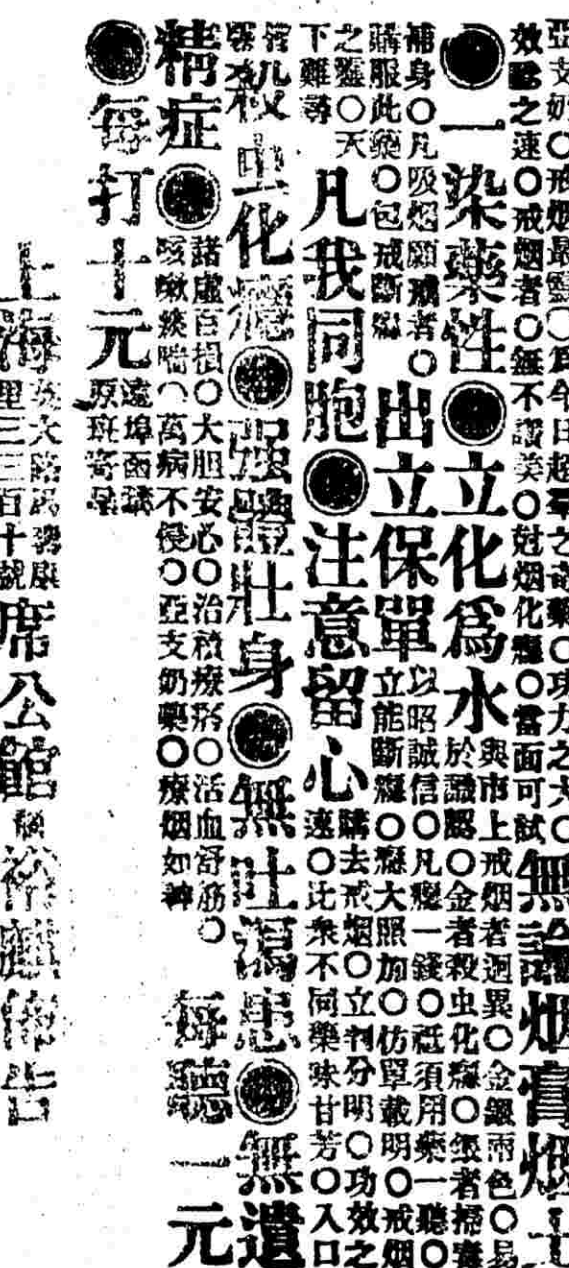 亞支奶〇戒烟最靈〇爲今日超羣之奇藥〇功力之大〇
效驗之速〇戒烟者〇無不讚美〇尅烟化癮〇當面可試
無論烟膏烟土
●一染藥性●立化爲水
與市上戒烟者迥異〇金銀兩色〇易
於識認〇金者殺虫化癮〇銀者掃毒
補身〇凡吸烟願戒者〇
購服此藥〇包戒斷癮
出立保單
以昭誠信〇凡癮一錢〇祗須用藥一聽〇
立能斷癮〇癮大照加〇仿單載明〇戒烟
之靈〇天
下難尋
凡我同胞●注意留心
購去戒烟〇立判分明〇功效之
速〇比衆不同藥味甘芳〇入口
殺虫化癮●强體壯身●無吐瀉患●無遺
精症●
諸虛百損〇大胆安心〇治癆療〇活血舒筋〇
咳嗽痰喘〇萬病不侵〇亞支奶藥〇療烟如神
每聽一元
●每打十元
遠埠函購
原班寄
上海
大路
里三百十號
席公館